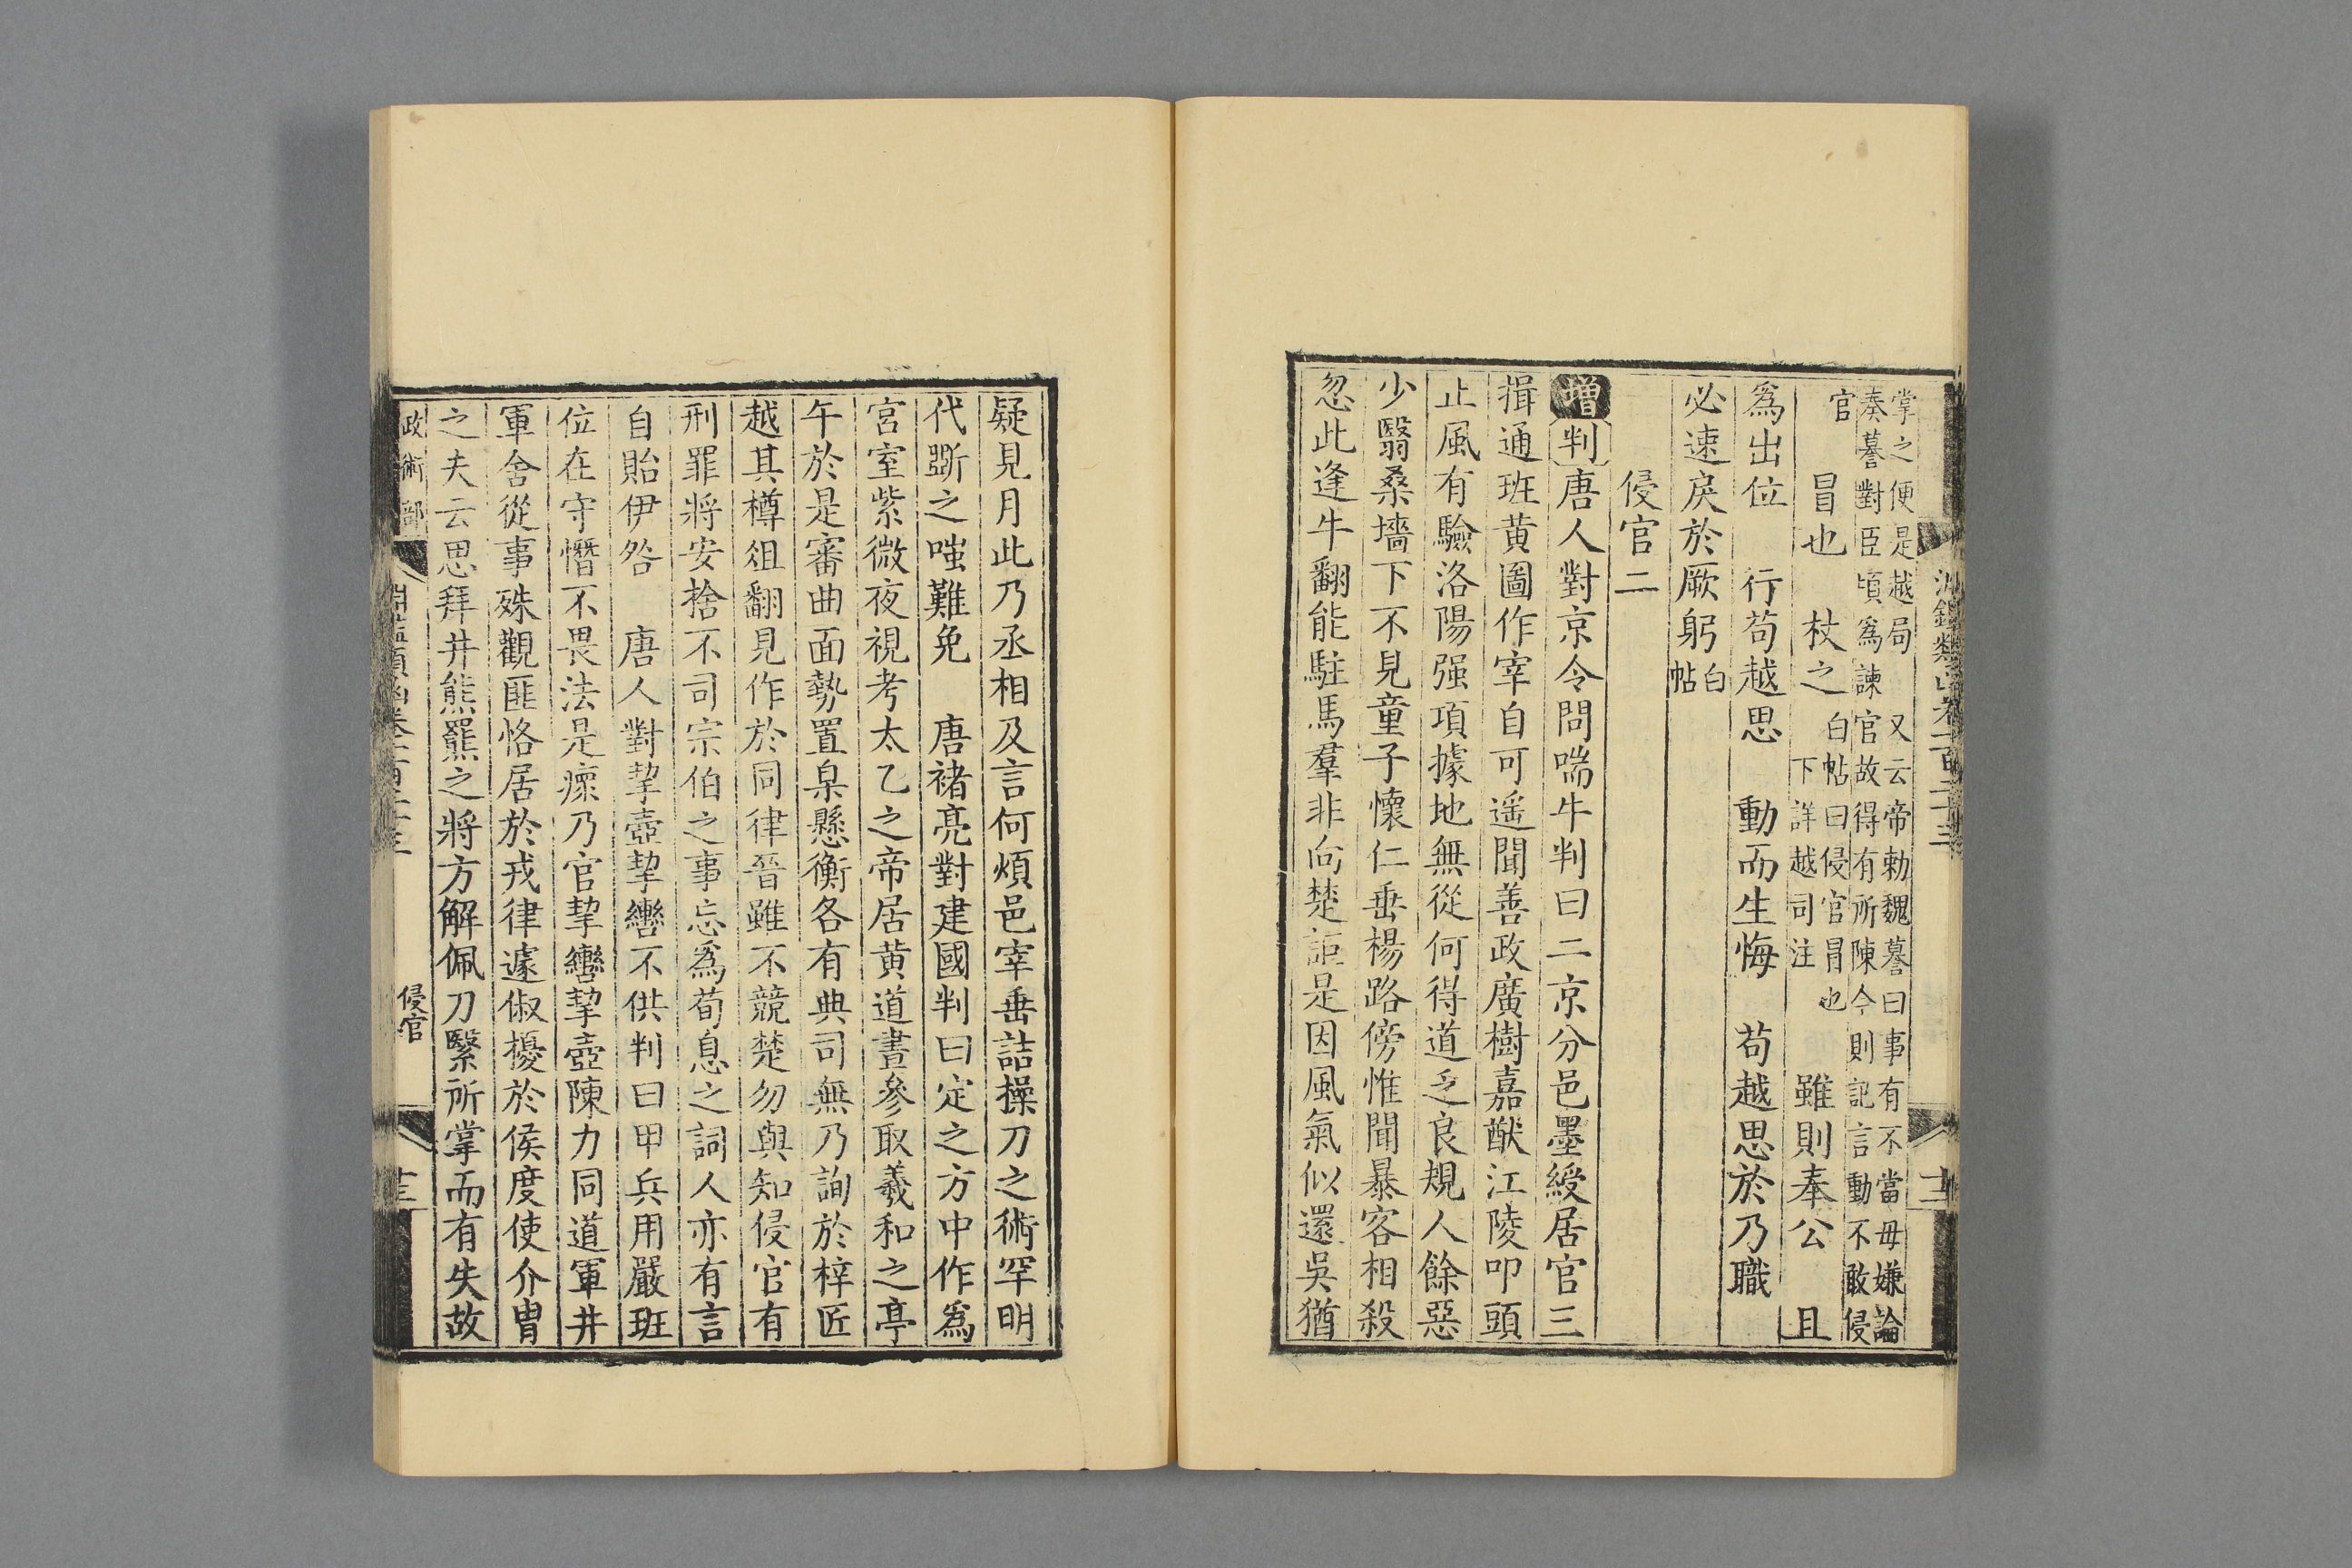 掌之便是越局　又云帝勅魏謩曰事有不當毋嫌論
奏謩對臣頃爲諫官故得有所陳今則記言動不敢侵
官　冒也　杖之　白帖曰侵官冒也　雖則奉公　且
下詳越司注
爲出位　行苟越思　動而生悔　苟越思於乃職
必速戾於厥躬白帖
侵官二
增判唐人對京令問喘牛判曰二京分邑墨綬居官三
揖通班黄圖作宰自可遥聞善政廣樹嘉猷江陵叩頭
止風有驗洛陽强項據地無從何得道乏良規人餘惡
少翳桑墻下不見童子懷仁垂楊路傍惟聞暴客相殺
忽此逢牛翻能駐馬羣非向楚詎是因風氣似還吳猶
疑見月此乃丞相及言何煩邑宰垂詰操刀之術罕明
代斲之嗤難免　唐褚亮對建國判曰定之方中作爲
宮室紫微夜視考太乙之帝居黄道晝參取羲和之亭
午於是審曲面勢置臬懸衡各有典司無乃詢於梓匠
越其樽俎翻見作於同律晉雖不競楚勿與知侵官有
刑罪將安捨不司宗伯之事忘爲荀息之詞人亦有言
自貽伊咎　唐人對挈壺挈轡不供判曰甲兵用嚴班
位在守慴不畏法是瘝乃官挈轡挈壺陳力同道軍井
軍舍從事殊觀匪恪居於戎律遽俶擾於侯度使介胄
之夫云思拜井熊羆之將方解佩刀緊所掌而有失故
政術部
侵官